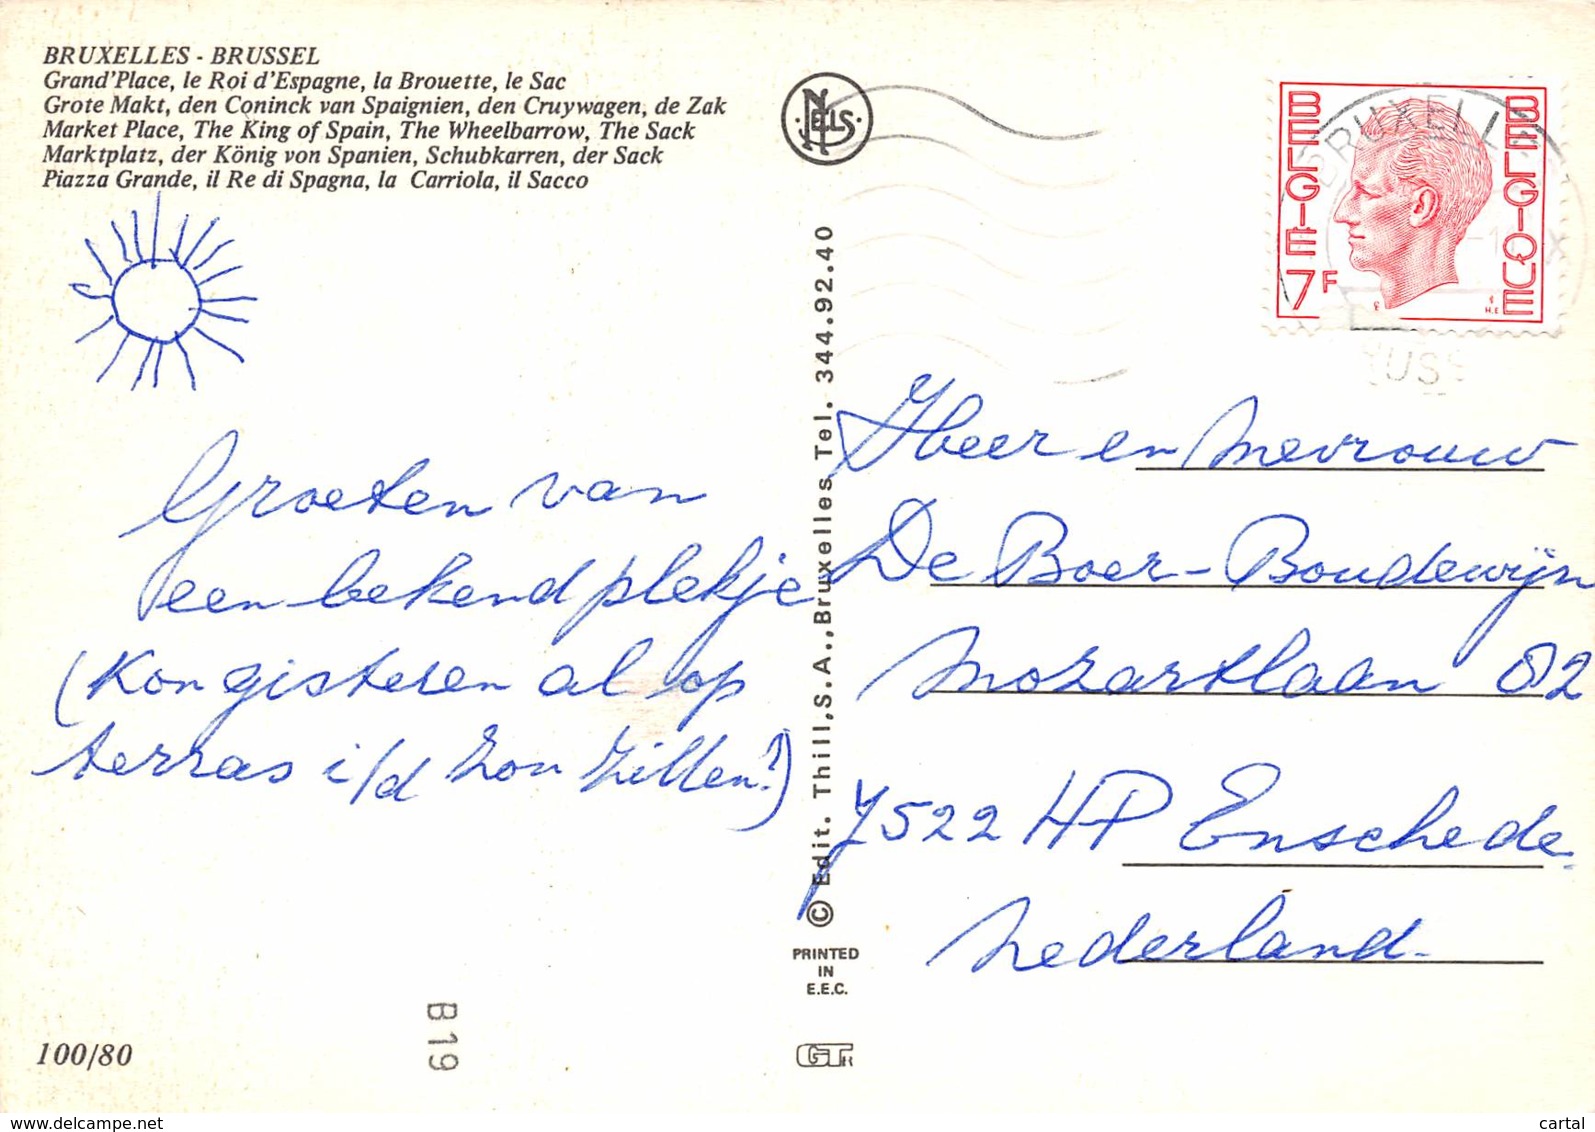 BRUXELLES - BRUSSEL
Grand'Place, le Roi d'Espagne, la Brouette, le Sac
Grote Makt, den Coninck van Spaignien, den Cruywagen, de Zak
Market Place, The King of Spain, The Wheelbarrow, The Sack
Marktplatz, der König von Spanien, Schubkarren, der Sack
Piazza Grande, il Re di Spagna, la Carriola, il Sacco
NELS
BELGIE
BELGIQUE
7F
BRUXELL
USS
Groeten van
een bekend plekje
(Kon gisteren al op
terras i/d zon zitten!)
© Edit. Thill, S.A., Bruxelles Tel. 344.92.40
PRINTED
IN
E.E.C.
Heer en Mevrouw
De Boer-Boudewijn
Mozartlaan 82
7522 HP Enschede.
Nederland.
100/80
B 19
www.delcampe.net
cartal